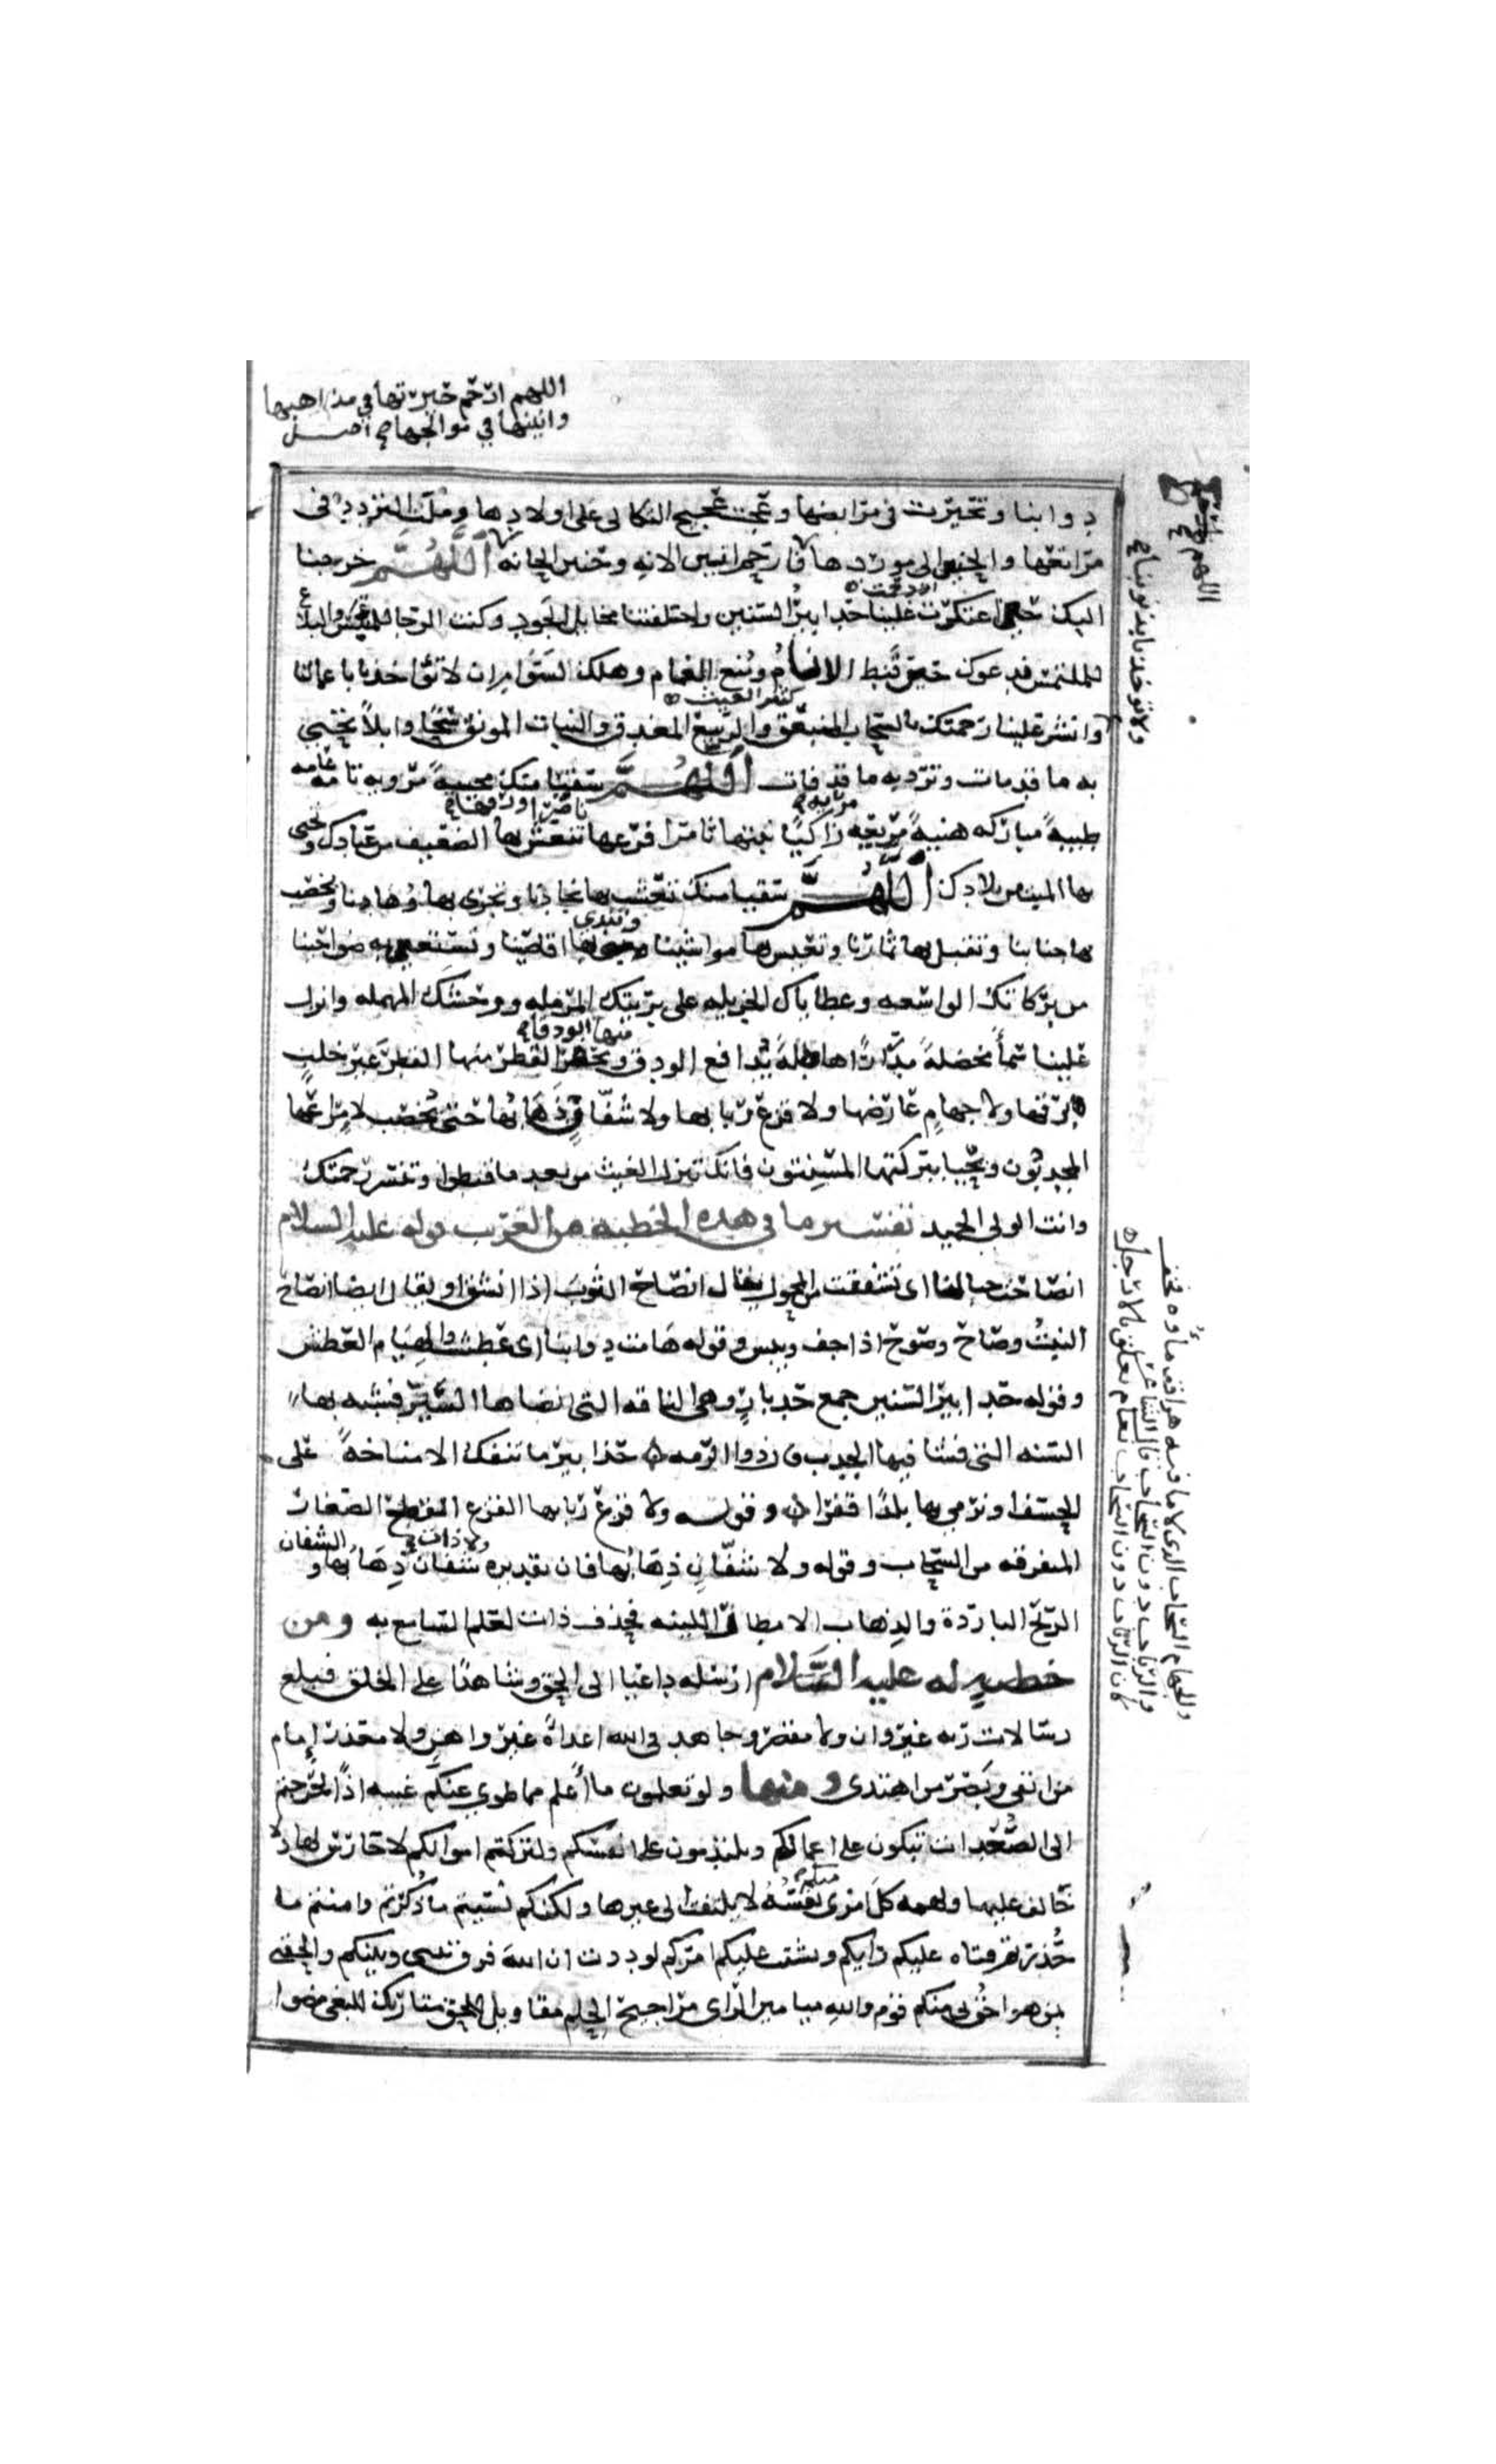 اللهم ارحم حيرتها في مذاهبها
وانينها في موالجها صح اصل
دوابنا وتحيرت في مرابضها وعجت عجيج الثكالى على اولادها وملت التردد في
مراتعها والحنين الى مواردها فارحم انين الانه وحنين الحانه اللهم خرجنا
اليك حين اعتكرت علينا حدابير السنين واخلفتنا مخايل الجود وكنت الرجا للمبتئس والبلاغ
للملتمس ندعوك حين قنط الانام ومنع الغمام وهلك السوام ان لا تؤاخذنا باعمالنا
وانشر علينا رحمتك بالسحاب المنبعق والربيع المغدق والنبات المونق سحا وابلا تحيي
به ما قد مات وترد به ما قد فات اللهم سقيا منك محييه مرويه تامه عامه
طيبه مباركه هنيه مريعه زاكيا نبتها ثامرا فرعها تنعش بها الضعيف من عبادك وتحيى
بها الميت من بلادك اللهم سقيا منك تعشب بها نجادنا وتجرى بها وهادنا ويخصب
بها جنابنا وتقبل بها ثمارنا وتعيش بها مواشينا وتندى بها اقاصينا وتستعين به ضواحينا
من بركاتك الواسعه وعطاياك الجزيله على بريتك المرمله ووحشك المهمله وانزل
علينا سمأ مخضلة مدرارا هاطلة يدافع الودق ويحفز القطر منها القطر غير خلب
برقها ولا جهام عارضها ولا قزع ربابها ولا شفان ذهابها حتى يخصب لامراعها
المجدبون ويحيا ببركتها المسنتون فانك تنزل الغيث من بعد ما قنطوا وتنشر رحمتك
وانت الولى الحميد تفسير ما في هذه الخطبه من الغريب قوله عليه السلام
انصاحت جبالنا اى تشققت من المحول يقال انصاح الثوب اذا انشق ويقال ايضا انصاح
النبت وصاح وصوح اذا جف ويبس وقوله هامت دوابنا اى عطشت والهيام العطش
وقوله حدابير السنين جمع حدبار وهي الناقه التى انضاها السير فشبه بها
السنه التى فشا فيها الجدب قال ذو الرمه حدابير ما تنفك الا مناخة على
الخسف او نرمي بها بلدا قفرا وقوله ولا قزع ربابها القزع القطع الصغار
المتفرقه من السحاب وقوله ولا شفان ذهابها فان تقديره ولا ذات شفان ذهابها والشفان
الريح البارده والذهاب الامطار اللينه فحذف ذات لعلم السامع به ومن
خطبه له عليه السلام ارسله داعيا الى الحق وشاهدا على الخلق فبلغ
رسالات ربه غير وان ولا مقصر وجاهد في الله اعداه غير واهن ولا معذر امام
من اتقى وبصر من اهتدى ومنها ولو تعلمون ما اعلم مما طوي عنكم غيبه اذا لخرجتم
الى الصعدات تبكون على اعمالكم وتلتدمون على انفسكم ولتركتم اموالكم لا حارس لها ولا
خالف عليها ولهمت كل امرى منكم نفسه لا يلتفت الى غيرها ولكنكم نسيتم ما ذكرتم وامنتم ما
حذرتم فتاه عليكم رايكم وتشتت عليكم امركم لوددت ان الله فرق بينى وبينكم والحقنى
بمن هو احق بى منكم قوم والله ميامين الراى مراجيح الحلم مقاويل بالحق متاريك للبغى مضوا
ولا تؤاخذنا بذنوبنا صح
والجهام السحاب الذى لا ما فيه
والرباب دون السحاب قال الشاعر
كان الرباب دون السحاب نعام تعلق بالارجل